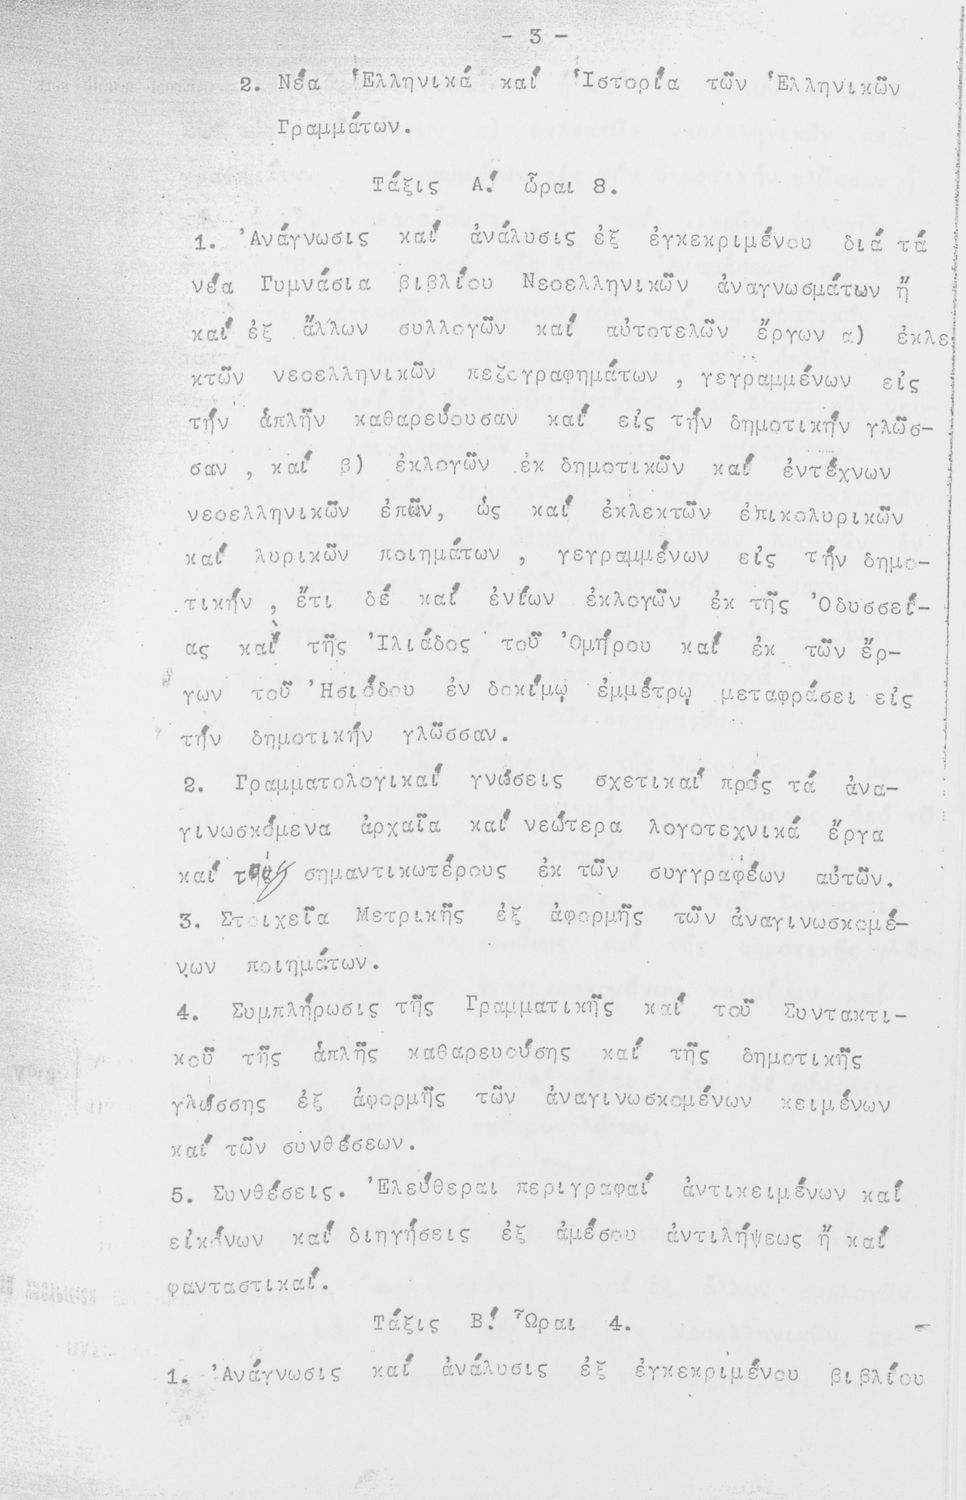 - 3 -
2. Νέα Ἑλληνικά καί Ἱστορία τῶν Ἑλληνικῶν
Γραμμάτων.
Τάξις Α΄. ὧραι 8.
1. Ἀνάγνωσις καί ἀνάλυσις ἐξ ἐγκεκριμένου διά τά
νέα Γυμνάσια βιβλίου Νεοελληνικῶν ἀναγνωσμάτων ἤ
καί ἐξ ἄλλων συλλογῶν καί αὐτοτελῶν ἔργων α) ἐκλε
κτῶν νεοελληνικῶν πεζογραφημάτων , γεγραμμένων εἰς
τήν ἁπλῆν καθαρεύουσαν καί εἰς τήν δημοτικήν γλῶσ-
σαν , καί β) ἐκλογῶν ἐκ δημοτικῶν καί ἐντέχνων
νεοελληνικῶν ἐπῶν, ὡς καί ἐκλεκτῶν ἐπικολυρικῶν
καί λυρικῶν ποιημάτων , γεγραμμένων εἰς τήν δημο-
τικήν , ἔτι δέ καί ἐνίων ἐκλογῶν ἐκ τῆς Ὀδυσσεί-
ας καί τῆς Ἰλιάδος τοῦ Ὁμήρου καί ἐκ τῶν ἔρ-
γων τοῦ Ἡσιόδου ἐν δοκίμῳ ἐμμέτρῳ μεταφράσει εἰς
τήν δημοτικήν γλῶσσαν.
2. Γραμματολογικαί γνώσεις σχετικαί πρός τά ἀνα-
γινωσκόμενα ἀρχαῖα καί νεώτερα λογοτεχνικά ἔργα
καί σημαντικωτέρους ἐκ τῶν συγγραφέων αὐτῶν.
3. Στοιχεῖα Μετρικῆς ἐξ ἀφορμῆς τῶν ἀναγινωσκομέ-
νων ποιημάτων.
4. Συμπλήρωσις τῆς Γραμματικῆς καί τοῦ Συντακτι-
κοῦ τῆς ἁπλῆς καθαρευούσης καί τῆς δημοτικῆς
γλώσσης ἐξ ἀφορμῆς τῶν ἀναγινωσκομένων κειμένων
καί τῶν συνθέσεων.
5. Συνθέσεις. Ἐλεύθεραι περιγραφαί ἀντικειμένων καί
εἰκόνων καί διηγήσεις ἐξ ἀμέσου ἀντιλήψεως ἤ καί
φανταστικαί.
Τάξις Β΄. Ὧραι 4.
1. Ἀνάγνωσις καί ἀνάλυσις ἐξ ἐγκεκριμένου βιβλίου